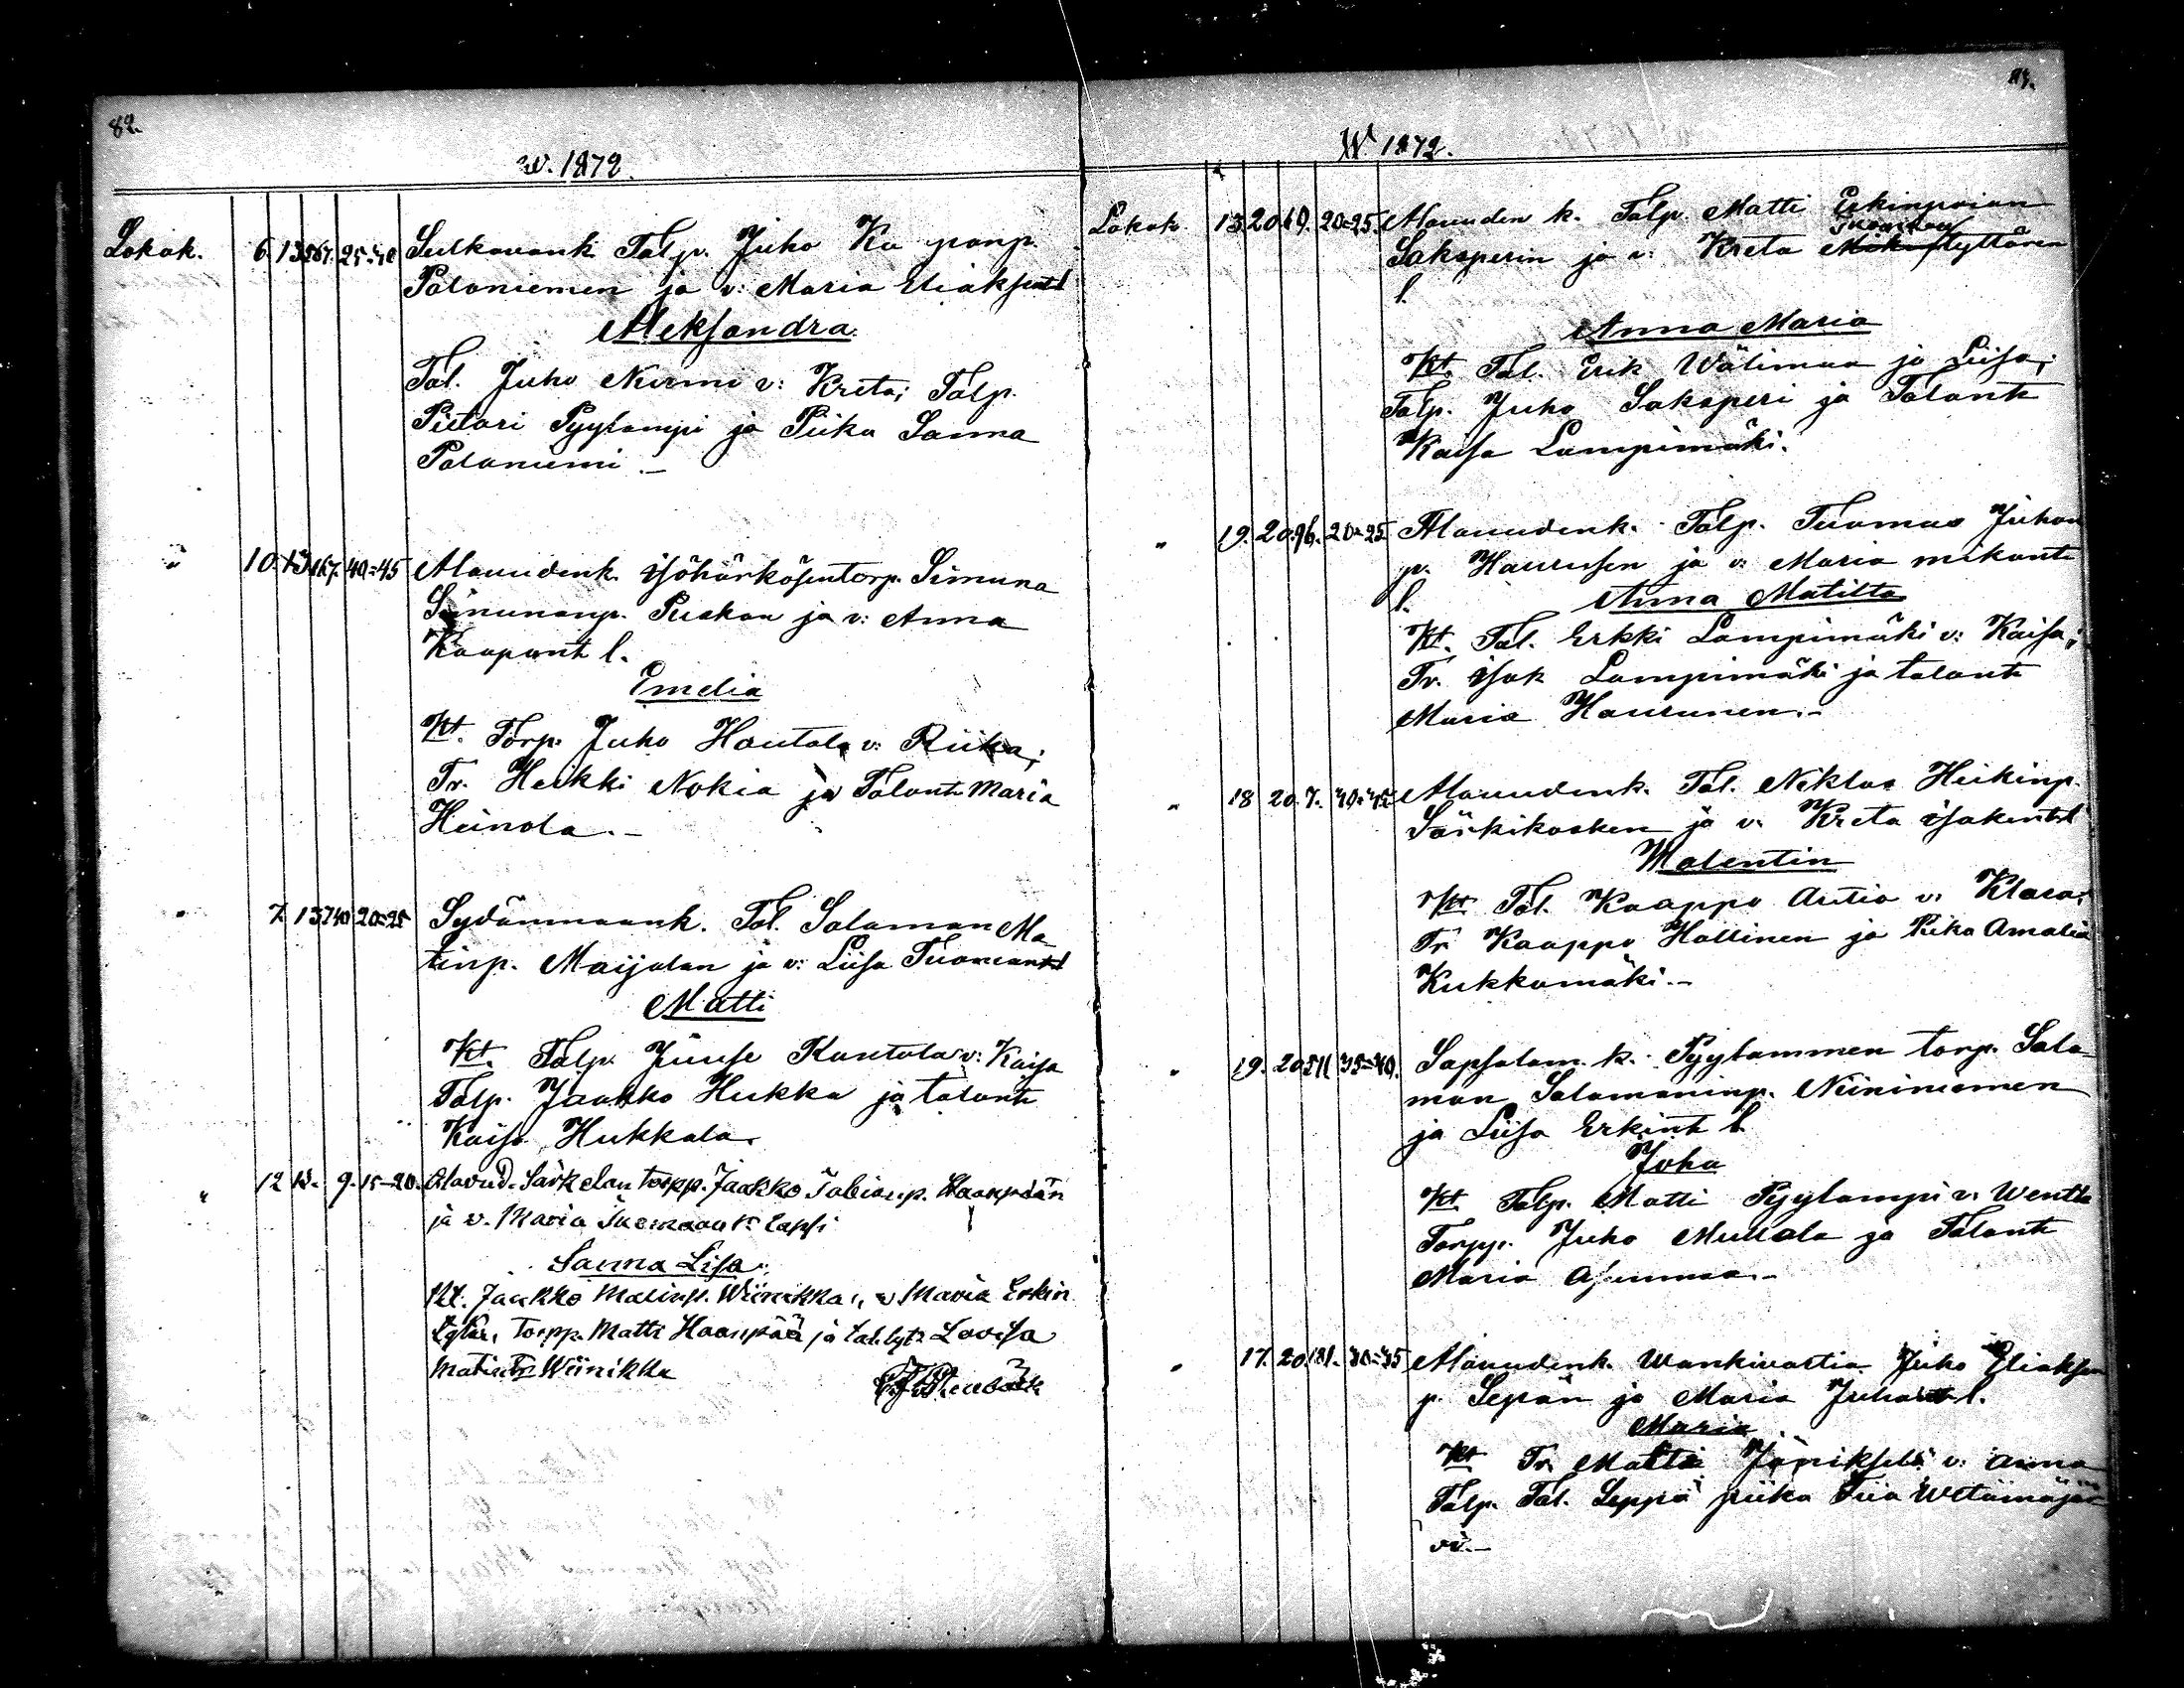 82.
w. 1872.
Lokak. 6. 13 567. 25=40 Sulkavank. Talp. Juho Ku panp.
Paloniemen ja v: Maria Eliaksent l
Aleksandra
Tal. Juho Nirmi v: Kreta; Talp.
Pietari Pyylampi ja Piika Sanna
Paloniemi –
" 10. 13 167. 40=45 Alavudenk. Isöhärkösentorp. Simuna
Simunanp. Ruskan ja v: Anna
Kaapunt l.
Emelia
Kt. Torp. Juho Hautala v: Riika;
Tr. Heikki Nokia ja Talont Maria
Heinola. –
" 7. 13 740 20=25 Sydänmaank. Tal. Salaman Ma
tinp. Maijalan ja v: Liisa Tuomant l
Matti
Kt. Talp. Juuse Kantola v: Kaisa
Talp. Jaakko Hukka ja talont
Kaisa Hukkala.
" 12 13. 9. 15–20. Alavud. Särkelan torpp. Jaakko Tabianp. Haanpään
ja v. Maria Tuomaant: lapsi
Sanna Lisa
Kt. Jaakko Matinp. Wiinikka, v Maria Erkin
tytär, Torpp. Matti Haanpää ja tal. tyt. Lovisa
Matintr Wiinikka
W. 1872.
Lokak. 13. 20 69. 20=25. Alavuden k. Talp. Matti Erkinpoian
Saksperin ja v: Kreta tyttären
l.
Anna Maria
Kt. Tal. Erik Wälimaa ja Liisa;
Talp. Juho Saksperi ja Talont
Kaisa Lampimäki.
" 19. 20. 96. 20=25 Alavudenk. Talp. Tuomas Juhan
p. Haurusen ja v: Maria mikont
l. Anna Matilta
Kt. Tal. Erkki Lampimäki v: Kaisa;
Tr. Isak Lampimäki ja talont
Maria Haurunen. –
" 18 20. 7. 40=45 Alavudenk. Tal. Niklas Heikinp.
Särkikosken ja v: Kreta Isakint l
Walentin
Kt. Tal. Kaappo Autio v: Klara;
Tr. Kaappo Hallinen ja Piika Amalia
Kukkomäki. –
" 19. 20 511 35=40. Sapsalam. k. Pyylammen torp. Sala
mon Salamaninp. Niininiemen
ja Liisa Erkint l.
Joha
Kt. Talp. Matti Pyylampi v: Wentla
Torpp. Juho Mullola ja Talont
Maria Asunmaa. –
" 17. 20. 181. 30=35 Alavudenk. Wankivartia Juho Eliaksen
p. Sepän ja Maria Juhant l.
Maria
Kt. Tr. Matti Jäniksela v: Anna
Talp. Tal. Seppä piika Tiia Wetämäjär
vi. –